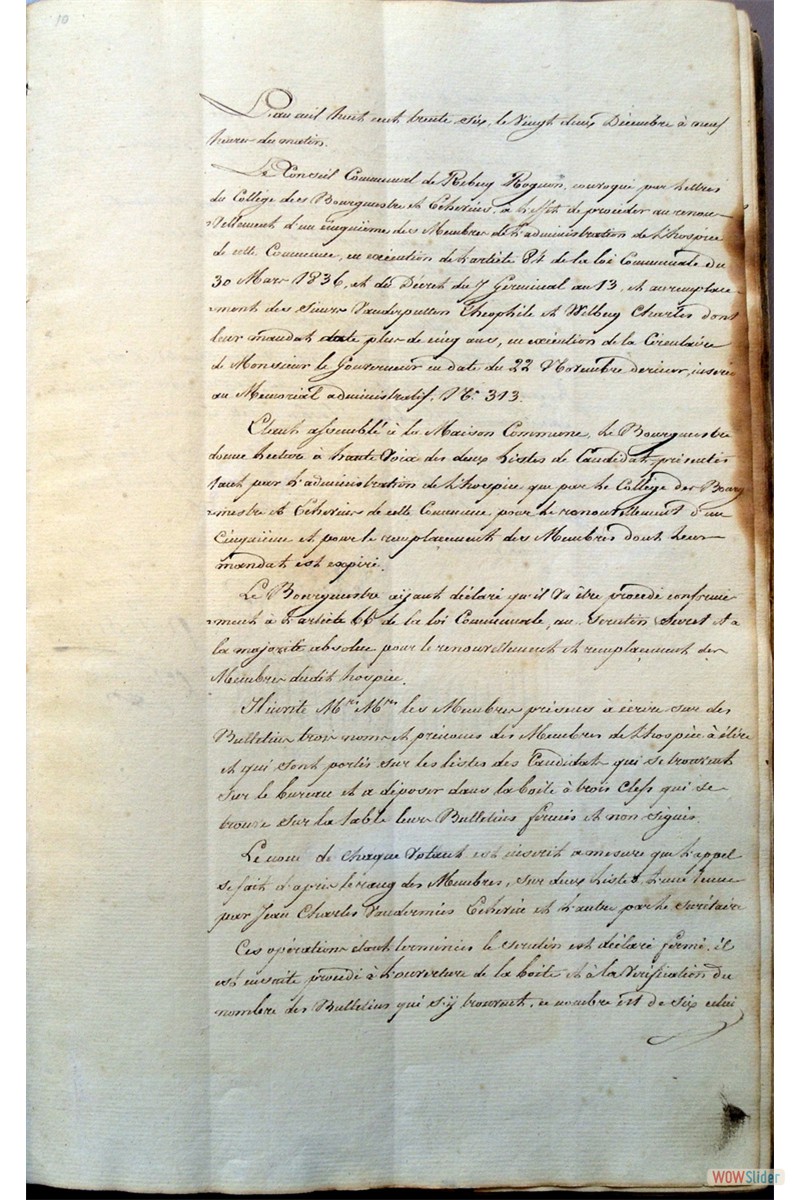 10
L'an mil huit cent trente six, le Vingt deux Décembre à neuf
heures du matin.
Le Conseil Communal de Rebecq Rognon, convoqué par Lettres
du Collège des Bourgmestre et Echevins, à L'effet de procéder au renou-
vellement d'un cinquième des Membres de L'administration de L'hospice
de cette Commune, en exécution de L'article 84 de la loi Communale du
30 Mars 1836, et du Décret du 7 Germinal an 13, et au remplace-
ment des sieurs Vanderputten Théophile et Wilbecq Charles dont
leur mandat date plus de cinq ans, en exécution de la Circulaire
de Monsieur le Gouverneur en date du 22 Novembre dernier, inséré
au Mémorial administratif, No. 313.
Etant assemblé à la Maison Commune, Le Bourgmestre
donne Lecture à haute Voix des deux Listes de Candidats présentés
tant par L'administration de L'hospice que par Le Collège des Bourg
mestre et Echevins de cette Commune pour Le renouvellement d'un
Cinquième et pour Le remplacement des Membres dont Leur
mandat est expiré.
Le Bourgmestre aijant déclaré qu'il Va être procédé conformé
ment à L'article 66 de la loi Communale, au Scrutin Secret et a
la majorité absolue pour le renouvellement et remplacement des
Membres dudit hospice.
Il invite Mrs Mrs les Membres présens à écrire sur des
Bulletins trois noms et prénoms des Membres de L'hospice à élire
et qui sont portés sur les listes des Candidats qui se trouvent
sur le bureau et a déposer dans la boite à trois Clefs qui se
trouve sur la table leurs Bulletins fermés et non signés.
Le nom de chaque Votant est inscrit a mesure que L'appel
se fait d'après le rang des Membres, sur deux Listes, L'une tenue
par Jean Charles Vandermies Echevin et L'autre par Le Secrétaire
Ces opérations étant terminées le scrutin est déclaré fermé, il
est ensuite procédé à L'ouverture de la boite et à la Vérification du
nombre des Bulletins qui s'ij trouvent, ce nombre est de six celui
WOWSlider